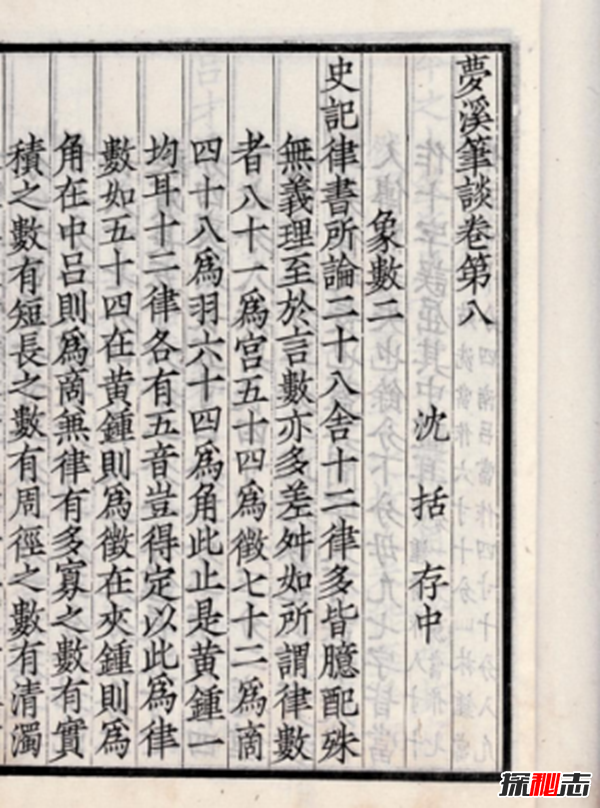 夢溪筆談卷第八
沈括存中
象數二
史記律書所論二十八舍十二律多皆臆配殊
無義理至於言數亦多差舛如所謂律數
者八十一爲宮五十四爲徵七十二爲商
四十八爲羽六十四爲角此止是黄鍾一
均耳十二律各有五音豈得定以此爲律
數如五十四在黄鍾則爲徵在夾鍾則爲
角在中呂則爲商兼律有多寡之數有實
積之數有短長之數有周徑之數有清濁
探秘志